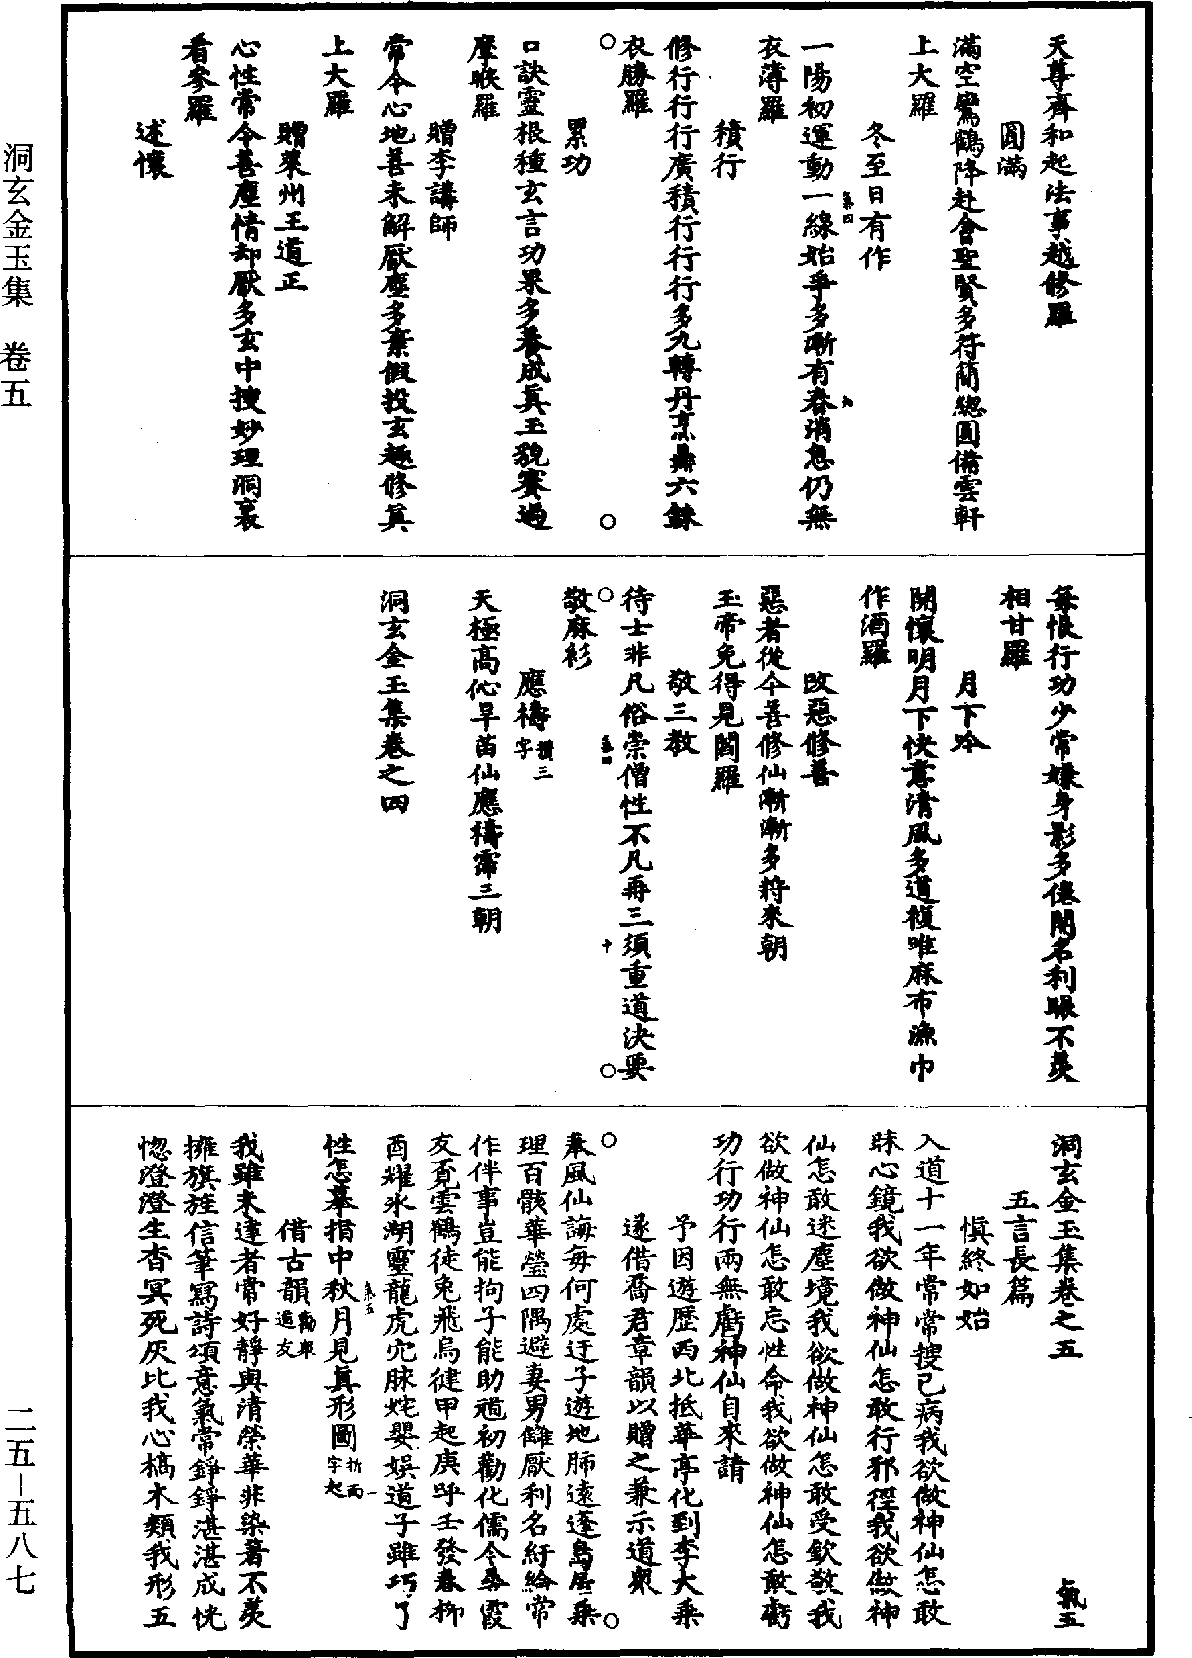 洞玄金玉集 卷五
二五-五八七
天尊齊和起法事越修羅
圓滿
滿空鸞鶴降赴會聖賢多符簡總圓備雲軒
上大羅
冬至日有作
一陽初運動一線始爭多漸有春消息仍無
衣薄羅
積行
修行行行廣積行行行多九轉丹烹鼎六銖
衣勝羅
累功
口訣靈根種玄言功果多養成真玉貌賽過
摩睺羅
贈李講師
常令心地善未解厭塵多棄假投玄趣修真
上大羅
贈萊州王道正
心性常令善塵情却厭多玄中搜妙理洞裏
看參羅
述懷
每恨行功少常嫌身影多倦聞名利賑不羨
相甘羅
月下吟
開懷明月下快意清風多道複唯麻布漉巾
作酒羅
改惡修善
惡者從今善修仙漸漸多將來朝
玉帝免得見閻羅
敬三教
待士非凡俗崇僧性不凡再三須重道決要
敬麻衫
應禱 攢三字
天極高仳旱苗仙應禱霈三朝
洞玄金玉集卷之四
洞玄金玉集卷之五 氣五
五言長篇
慎終如始
入道十一年常常搜己病我欲做神仙怎敢
昧心鏡我欲做神仙怎敢行邪徑我欲做神
仙怎敢迷塵境我欲做神仙怎敢受欽敬我
欲做神仙怎敢忘性命我欲做神仙怎敢虧
功行功行兩無虧神仙自來請
予因遊歷西北抵華亭化到李大乘
遂借喬君章韻以贈之兼示道衆
奉風仙誨每何處迓子遊地肺遠蓬島居乘
理百骸華瑩四隅避妻男雠厭利名紆綸常
作伴事豈能拘子能助趙初勸化儒令尋霞
友覓雲鶴徒兔飛烏徤甲起庚呼壬發春柳
酉耀氷湖靈龍虎穴脉姹嬰娛道子雖巧丫
性怎摹指中秋月見真形圖 折兩一字起
借古韻 勸衆道友
我雖未達者常好靜與清榮華非染著不羨
擁旗旌信筆寫詩頌意氣常錚錚湛湛成恍
惚澄澄生杳冥死灰比我心槁木類我形五